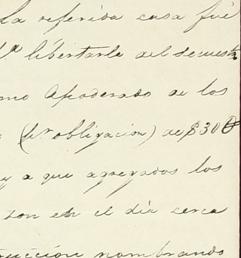 La referida casa fué
pa libertarla del secuest
omo Apoderado de los
(la obligacion) de $300
y a que agregados los
son en el dia cerca
truccion nombrando